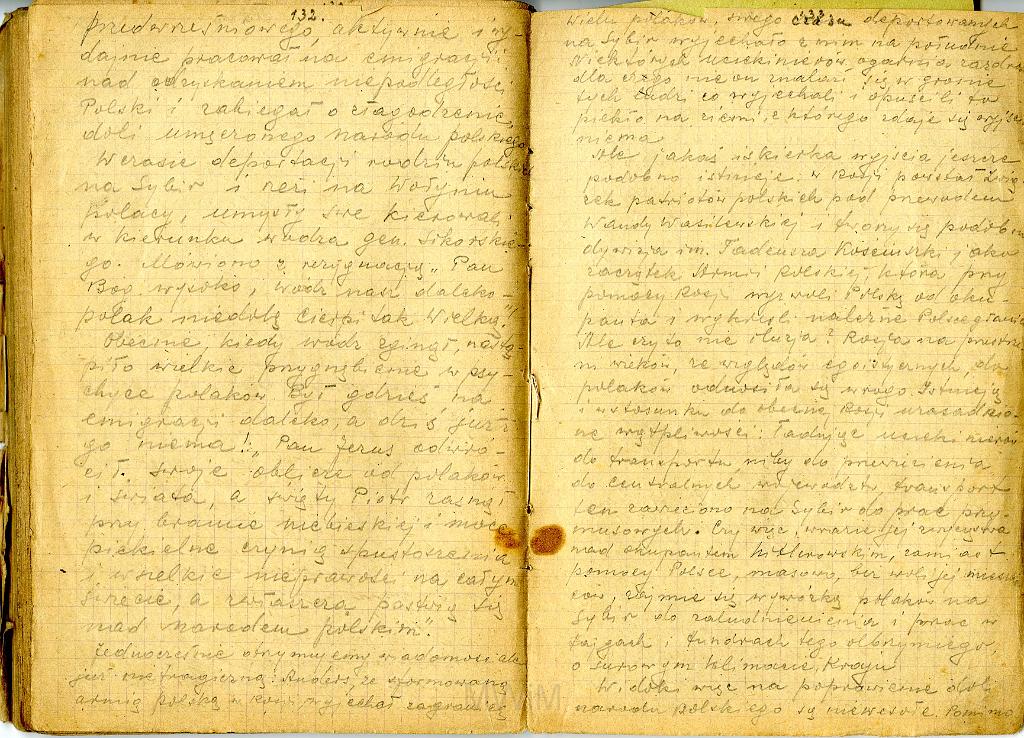 132.
przedwrześniowego, aktywnie i wy-
dajnie pracował na emigracji
nad odzyskaniem niepodległości
Polski i zabiegał o złagodzenie
doli umęczonego narodu polskiego
W czasie deportacji rodzin polskich
na Sybir i rzezi na Wołyniu
polacy, umysły swe kierowali
w kierunku wodza gen. Sikorskie-
go. Mówiono z rezygnacją „Pan
Bóg wysoko, wódz nasz daleko-
polak niedolę cierpi tak wielką."
Obecnie, kiedy wódz zginął, nastą-
piło wielkie przygnębienie w psy-
chice polaków. Był gdzieś na
emigracji daleko, a dziś już
go niema! „Pan Jezus odwró-
cił swoje oblicze od polaków
i świata, a święty Piotr zasnął
przy bramie niebieskiej i moce
piekielne czynią spustoszenia
i wszelkie nieprawości na całym
świecie, a zwłaszcza pastwią się
nad narodem polskim".
Jednocześnie otrzymujemy wiadomość ale
już nie tragiczną: Anders, ze sformowaną
armią polską w Rosji wyjechał zagranicę
133.
wielu polaków, swego czasu deportowanych
na Sybir wyjechało z nim na południe
Niektórych uciekinierów ogarnia
dla czego nie on znalazł się w gronie
tych ludzi co wyjechali i opuścili to
piekło na ziemi, z którego zdaje się wyjścia
niema.
Ale jakaś iskierka wyjścia jeszcze
podobno istnieje: w Rosji powstał Zwią-
zek patriotów polskich pod przewodem
Wandy Wasilewskiej i tworzy się podobno
dywizja im. Tadeusza Kościuszki jako
zaczątek Armii Polskiej, która przy
pomocy Rosji wyzwoli Polskę od oku-
panta i wykreśli należne Polsce granice
Ale czy to nie iluzja? Rosja na przestrze-
ni wieków, ze względów egoistycznych, do
polaków odnosiła się wrogo. Istnieją
i w stosunku do obecnej Rosji uzasadnio-
ne wątpliwości: Ładując uciekinierów
do transportu niby do przewiezienia
do centralnych województw, transport
ten zawrócono na Sybir do prac przy-
musowych. Czy więc, w razie jej zwycięstwa
nad okupantem hitlerowskim, zamiast
pomocy Polsce, masowo, bez woli jej miesz-
ców, zajmie się wywózką polaków na
Sybir do zaludnienia i prac w
tajgach i tundrach tego olbrzymiego
o surowym klimacie, Kraju
Widoki więc na poprawienie doli
narodu Polskiego są niewesołe. Pomimo